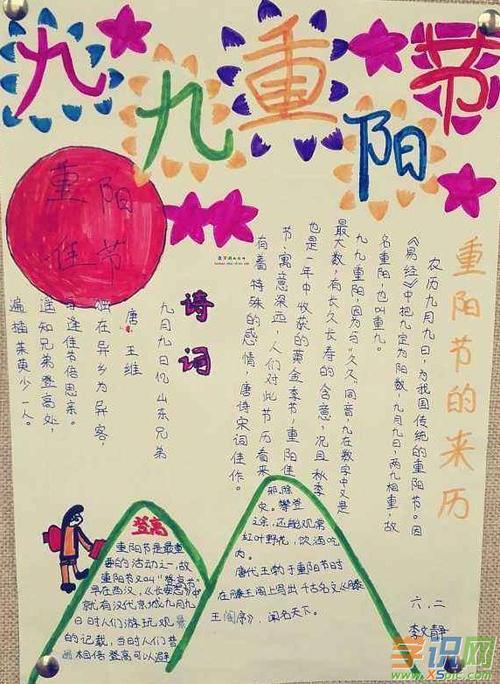 九九重阳节
重阳
佳节
重阳节的来历
农历九月九日,为我国传统的重阳节。因
《易经》中把九定为阳数,九月九日,两九相重,故
名重阳,也叫重九。
九九重阳,因为与“久久”同音,九在数字中又是
最大数,有长久长寿的含意,况且秋季
也是一年中收获的黄金季节,重阳佳
节,寓意深远,人们对此节历看来
有着特殊的感情,唐诗宋词佳作。
诗词
九月九日忆山东兄弟
唐 王维
独在异乡为异客,
每逢佳节倍思亲。
遥知兄弟登高处,
遍插茱萸少一人。
登高
重阳节是最重
要的活动之一,故
重阳节又叫“登高节”。
早在西汉,《长安志》中
就有汉代京城九月九
日时人们游玩观景
的记载,当时人们普
遍相信登高可以避
祸除
灾。攀登
之余,还能观赏
红叶野花,饮酒吃
肉。
唐代王勃于重阳节时
在滕王阁上写出千古名文《滕
王阁序》,闻名天下。
六.二
李文静
学识网
www.XSpic.com